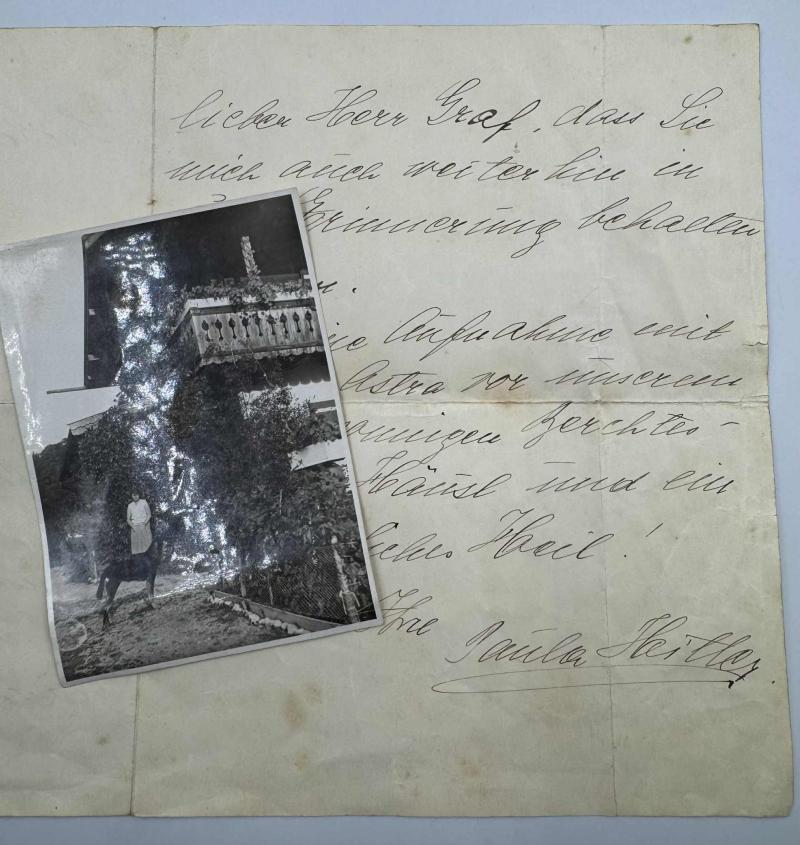 lieber Herr Graf, dass Sie
mich auch weiterhin in
Erinnerung behalten
Aufnahme mit
Astra vor unserem
Berchtes-
Häusl und ein
Heil!
Ihre
Paula Heitler.